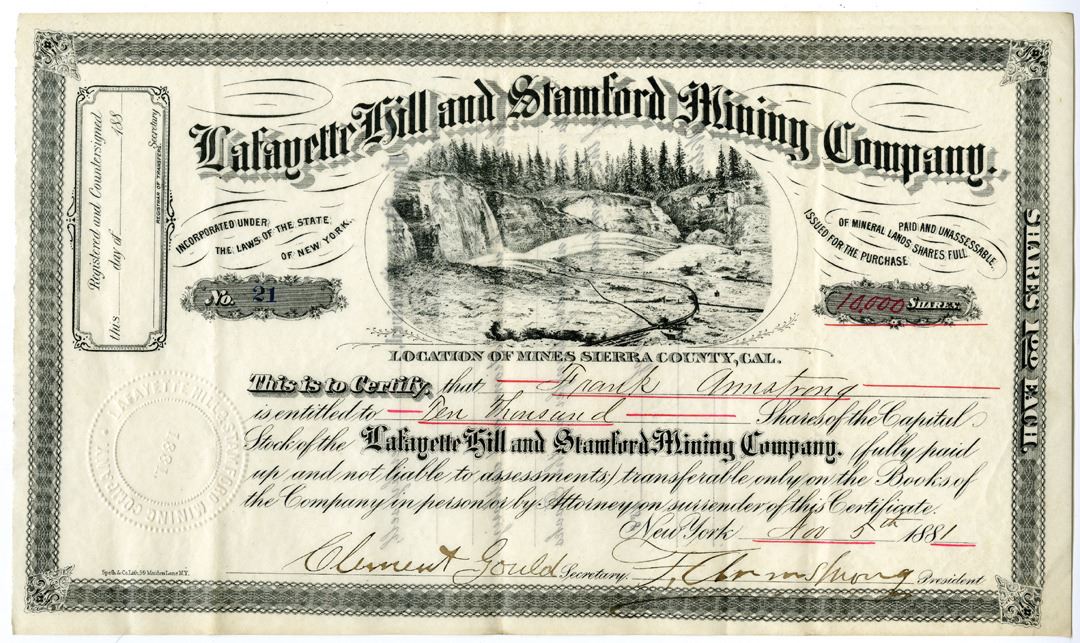 Lafayette Hill and Stamford Mining Company.
INCORPORATED UNDER
THE LAWS OF THE STATE
OF NEW YORK.
No. 21
PAID AND UNASSESSABLE.
OF MINERAL LANDS SHARES FULL
ISSUED FOR THE PURCHASE
10,000 SHARES
LOCATION OF MINES SIERRA COUNTY, CAL.
This is to Certify, that Frank Armstrong
is entitled to Ten Thousand Shares of the Capital
Stock of the Lafayette Hill and Stamford Mining Company. (fully paid
up and not liable to assessments) transferable only on the Books of
the Company in person or by Attorney on surrender of this Certificate.
New York Nov 5th 1881
Clement Gould Secretary. F. Armstrong President
Registered and Countersigned
this day of 188
Secretary
REGISTRAR OF TRANSFERS.
SHARES $1.00 EACH
LAFAYETTE HILL STAMFORD MINING COMPANY
1881